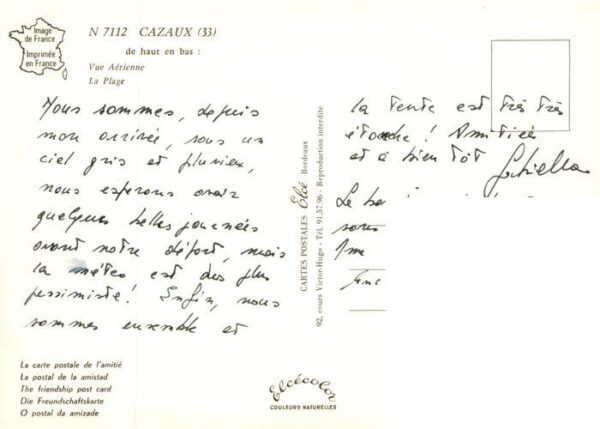 Image
de France
Imprimée
en France
N 7112 CAZAUX (33)
de haut en bas :
Vue Aérienne
La Plage
Nous sommes, depuis
mon arrivée, sous un
ciel gris et pluvieux,
nous esperons avoir
quelques belles journées
avant notre départ, mais
la météo est des plus
pessimiste! Enfin, nous
sommes ensemble et
la tente est très très
étanche! Amitiés
et à bien tôt
Le
sous
CARTES POSTALES Elcé Bordeaux
92, cours Victor-Hugo - Tél. 91.57.96 - Reproduction interdite
La carte postale de l'amitié
La postal de la amistad
The friendship post card
Die Freundschaftskarte
O postal da amizade
Elcécolor
COULEURS NATURELLES